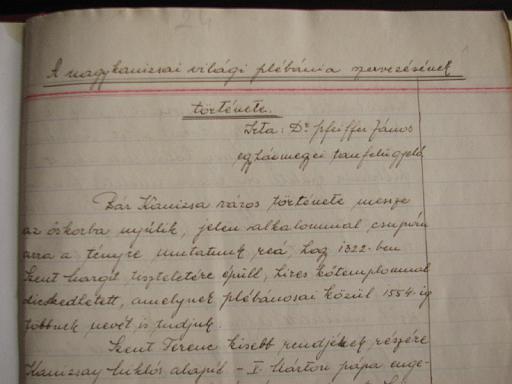 24
A nagykanizsai világi plébánia szervezésének
története.
Írta: Dr Pfeiffer János
egyházmegyei tanfelügyelő.
Bár Kanizsa város története messze
az őskorba nyúlik, jelen alkalommal csupán
arra a tényre mutatunk reá, hog 1322-ben
Szent Margit tiszteletére épült, híres kőtemplommal
dicsekedhetett, amelynek plébánosai közül 1554-ig
többnek nevét is tudjuk.
Szent Ferenc kisebb rendjének részére
Kanizsay Miklós alapít - V. Márton pápa enge-